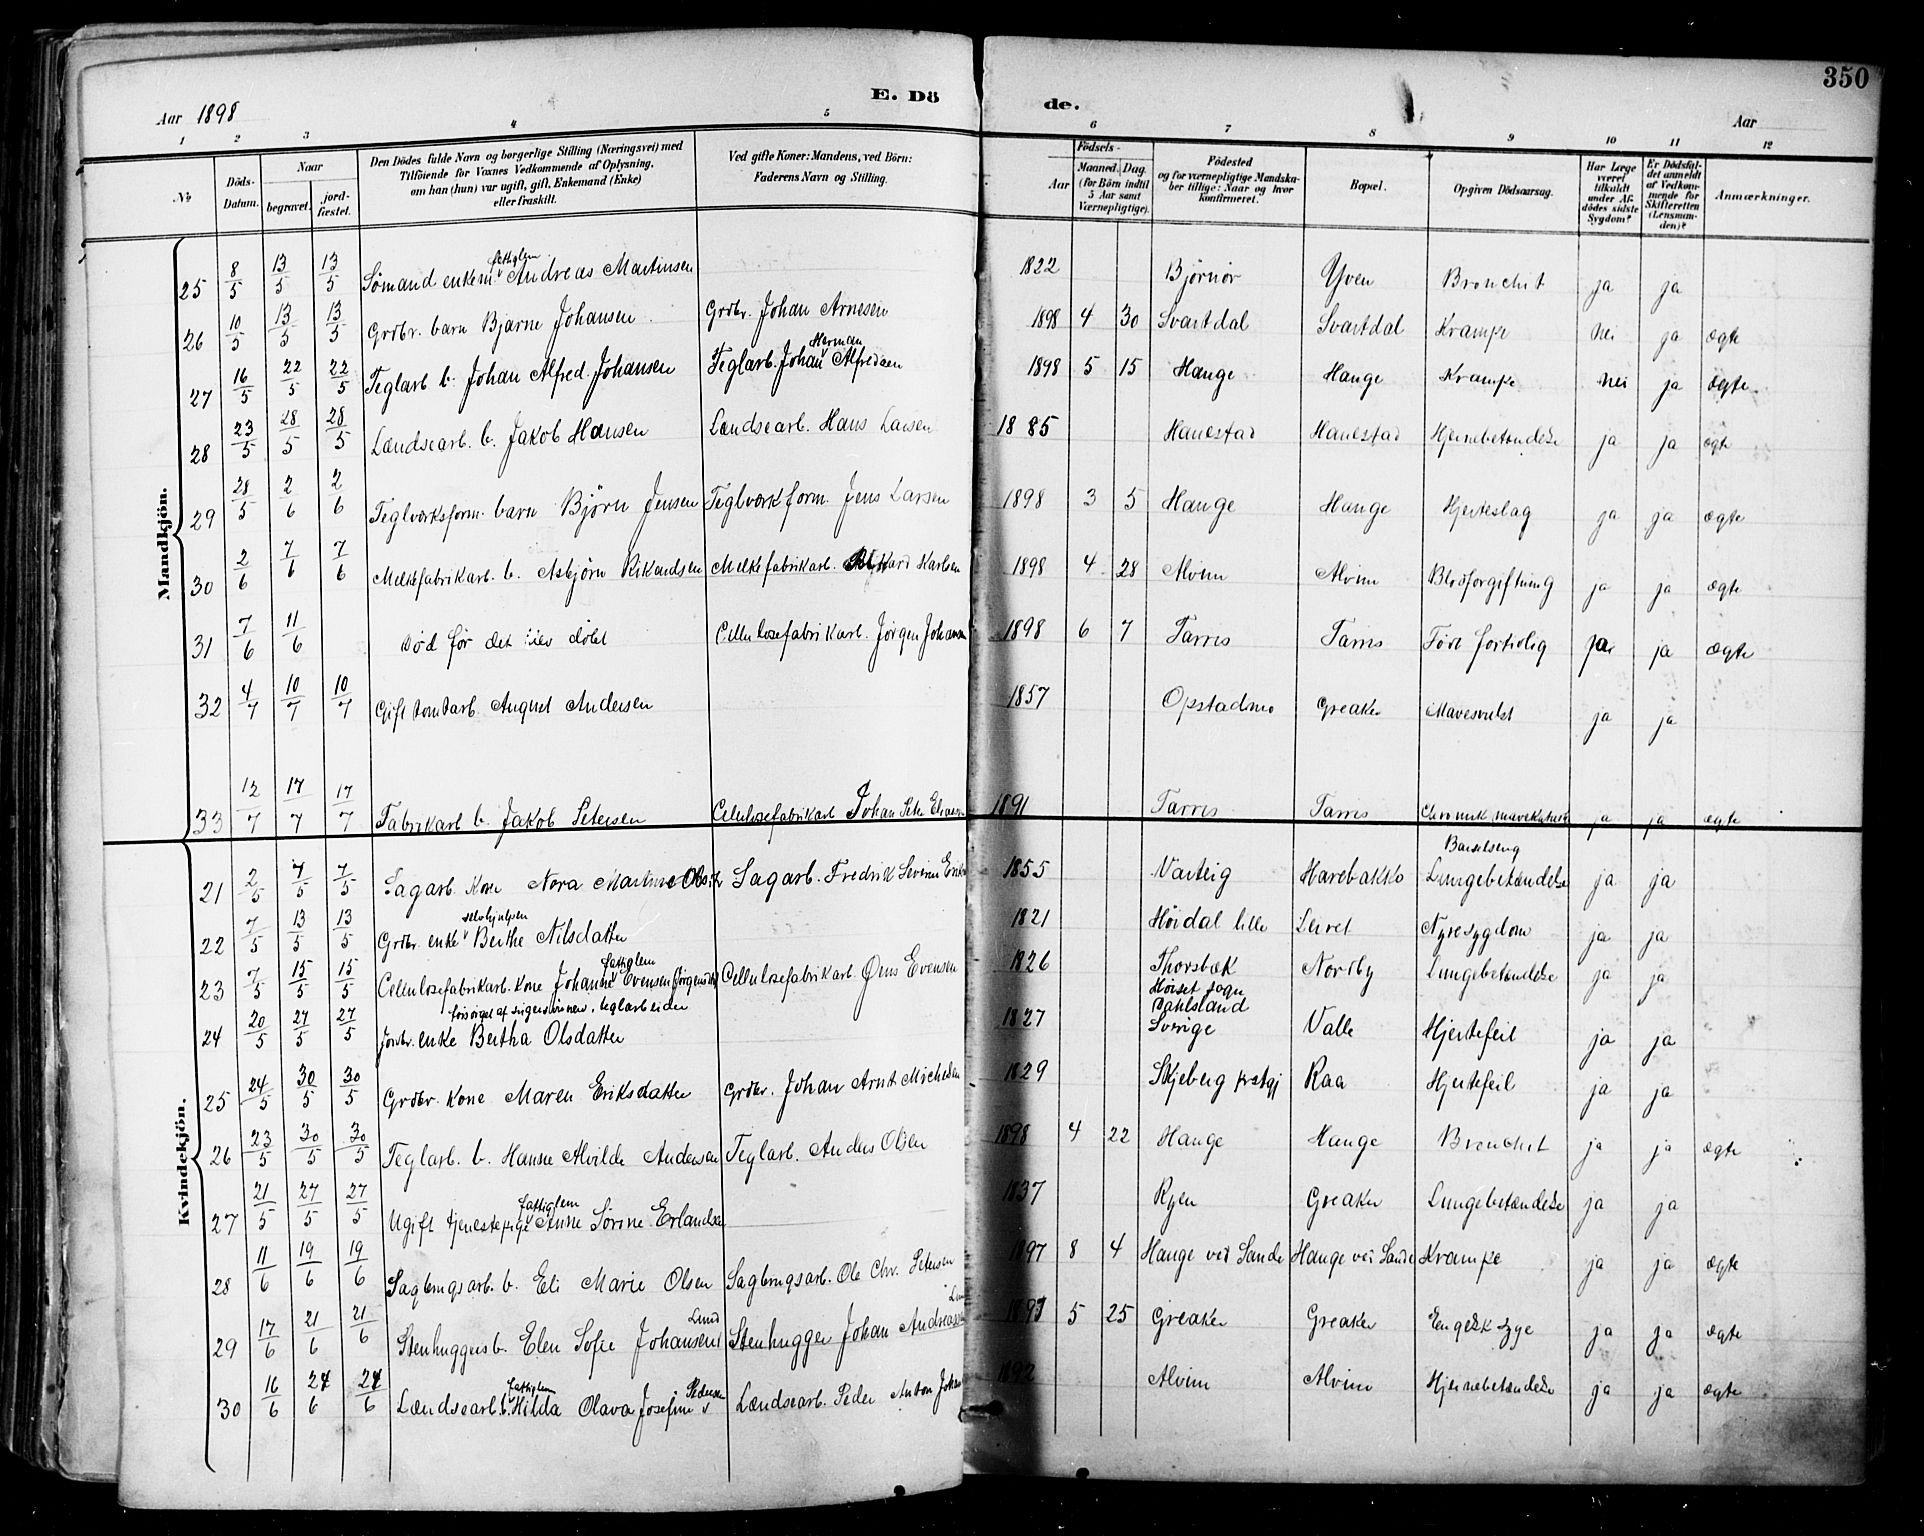 350
Aar 1898
E. Dö
de.
Aar
1 2 3 4 5 6 7 8 9 10 11 12
No
Döds-Datum.
Naar
begravet.
jord-fæstet.
Den Dödes fulde Navn og borgerlige Stilling (Næringsvei) med
Tilföiende for Voxnes Vedkommende af Oplysning,
om han (hun) var ugift, gift, Enkemand (Enke)
eller fraskilt.
Ved gifte Koner: Mandens, ved Börn:
Faderens Navn og Stilling.
Födsels-
Aar
Maaned. Dag.
(for Börn indtil
5 Aar samt
Værnepligtige).
Födested
og for værnepligtige Mandska-
ber tillige: Naar og hvor
konfirmeret.
Bopæl.
Opgiven Dödsaarsag.
Har Læge
været
tilkaldt
under Af-
dödes sidste
Sygdom?
Er Dödsfal-
det anmeldt
af Vedkom-
mende for
Skifteretten
(Lensman-
den)?
Anmærkninger.
Mandkjön.
25 8/5 13/5 13/5 Sømand enkem. fattiglem Andreas Martinsen 1822 Bjørnør Yven Bronchit ja ja
26 10/5 13/5 13/5 Grdbr. barn Bjarne Johansen Grdbr. Johan Arnesen 1898 4 30 Svartdal Svartdal Krampe nei ja ægte
27 16/5 22/5 22/5 Teglarb b. Johan Alfred Johansen Teglarb. Johan Herman Alfredsen 1898 5 15 Hauge Hauge Krampe nei ja ægte
28 23/5 28/5 28/5 Lændsearb. b. Jakob Hansen Lændsearb. Hans Larsen 1885 Hanestad Hanestad Hjernebetændelse ja ja ægte
29 28/5 2/6 2/6 Teglverksform. barn Bjørn Jensen Teglverkform. Jens Larsen 1898 3 5 Hauge Hauge Hjerteslag ja ja ægte
30 2/6 7/6 7/6 Melkefabrikarb. b. Asbjørn Rikardsen Melkefabrikarb. Rikard Karlsen 1898 4 28 Alvim Alvim Blodforgiftning ja ja ægte
31 7/6 11/6 Død før det blev døbt Cellulosefabrikarb. Jørgen Johansen 1898 6 7 Tarris Tarris Født fortidlig ja ja ægte
32 4/7 10/7 10/7 Gift tomtarb. August Andersen 1857 Opstadmo Greaker Mavesvulst ja ja
33 12/7 17/7 17/7 Fabrikarb b. Jakob Petersen Cellulosefabrikarb Johan Peter 1891 Tarris Tarris Chronisk ja ja ægte
Kvindekjön.
21 2/5 7/5 7/5 Sagarb. Kone Nora Martine Sagarb. Fredrik Severin 1855 Varteig Harebakke Barselseng Lungebetændelse ja ja
22 7/5 13/5 13/5 Grdbr. enke selvhjulpen Berthe Nilsdatter 1821 Høidal lille Leiret Nyresygdom ja ja
23 7/5 15/5 15/5 Cellulosefabrikarb. Kone Johanne fattiglem Evensen Cellulosefabrikarb. Evensen 1826 Thorsbæk Nordby Lungebetændelse ja ja
24 20/5 27/5 27/5 forsørget af teglarbeider Jordbr. enke Bertha Olsdatter 1827 sogn Dahlsland Sverige Valle Hjertefeil ja ja
25 24/5 30/5 30/5 Grdbr. Kone Maren Eriksdatter Grdbr. Johan Arnt Michelsen 1829 Skjeberg prstgj Raa Hjertefeil ja ja
26 23/5 30/5 30/5 Teglarb. b. Hansine Alvilde Andersen Teglarb. Anders Olsen 1898 4 22 Hauge Hauge Bronchit ja ja ægte
27 21/5 27/5 27/5 Ugift tjenestepige fattiglem Anne Sørine Erlandsen 1837 Ryen Greaker Lungebetændelse ja ja
28 11/6 19/6 19/6 Sagbrugsarb. b. Eli Marie Olsen Sagbrugsarb. Ole Chr. Petersen 1897 8 4 Hauge ved Sande Hauge ved Sande Krampe ja ja ægte
29 17/6 21/6 21/6 Stenhuggers b. Elen Sofie Johansen Lund Stenhugger Johan Andreassen 1897 5 25 Greaker Greaker Engelsk syge ja ja ægte
30 16/6 24/6 24/6 Lændsearb. b. fattiglem Hilda Olava Josefine Pedersen Lændsearb. Peder Anton 1892 Alvim Alvim Hjernebetændelse ja ja ægte